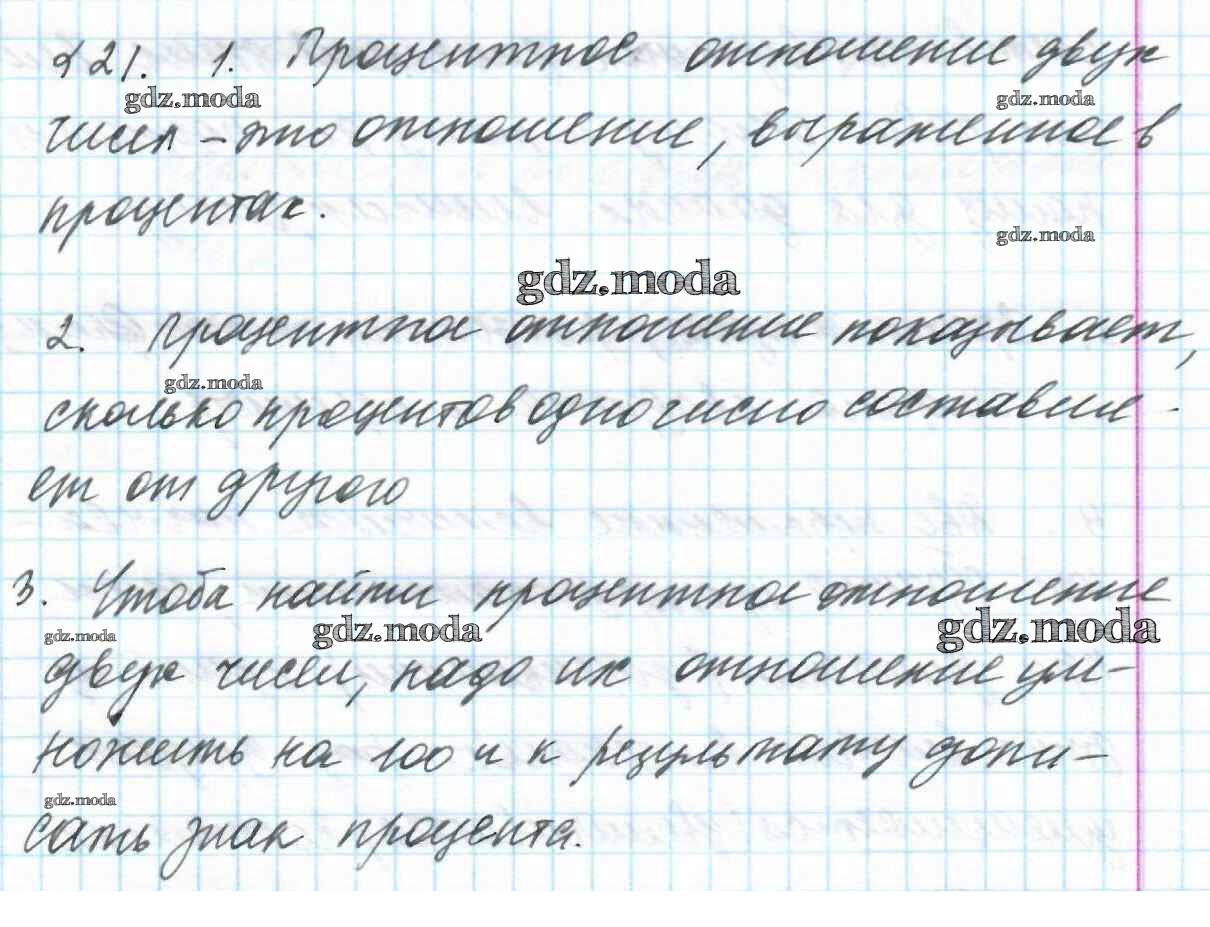 §21. 1. Процентное отношение двух
gdz.moda gdz.moda
чисел – это отношение, выраженное в
процентах.
gdz.moda
gdz.moda
2. Процентное отношение показывает,
gdz.moda
сколько процентов одно число составля-
ет от другого
3. Чтобы найти процентное отношение
gdz.moda gdz.moda gdz.moda
двух чисел, надо их отношение ум-
ножить на 100 и к результату допи-
gdz.moda
сать знак процента.